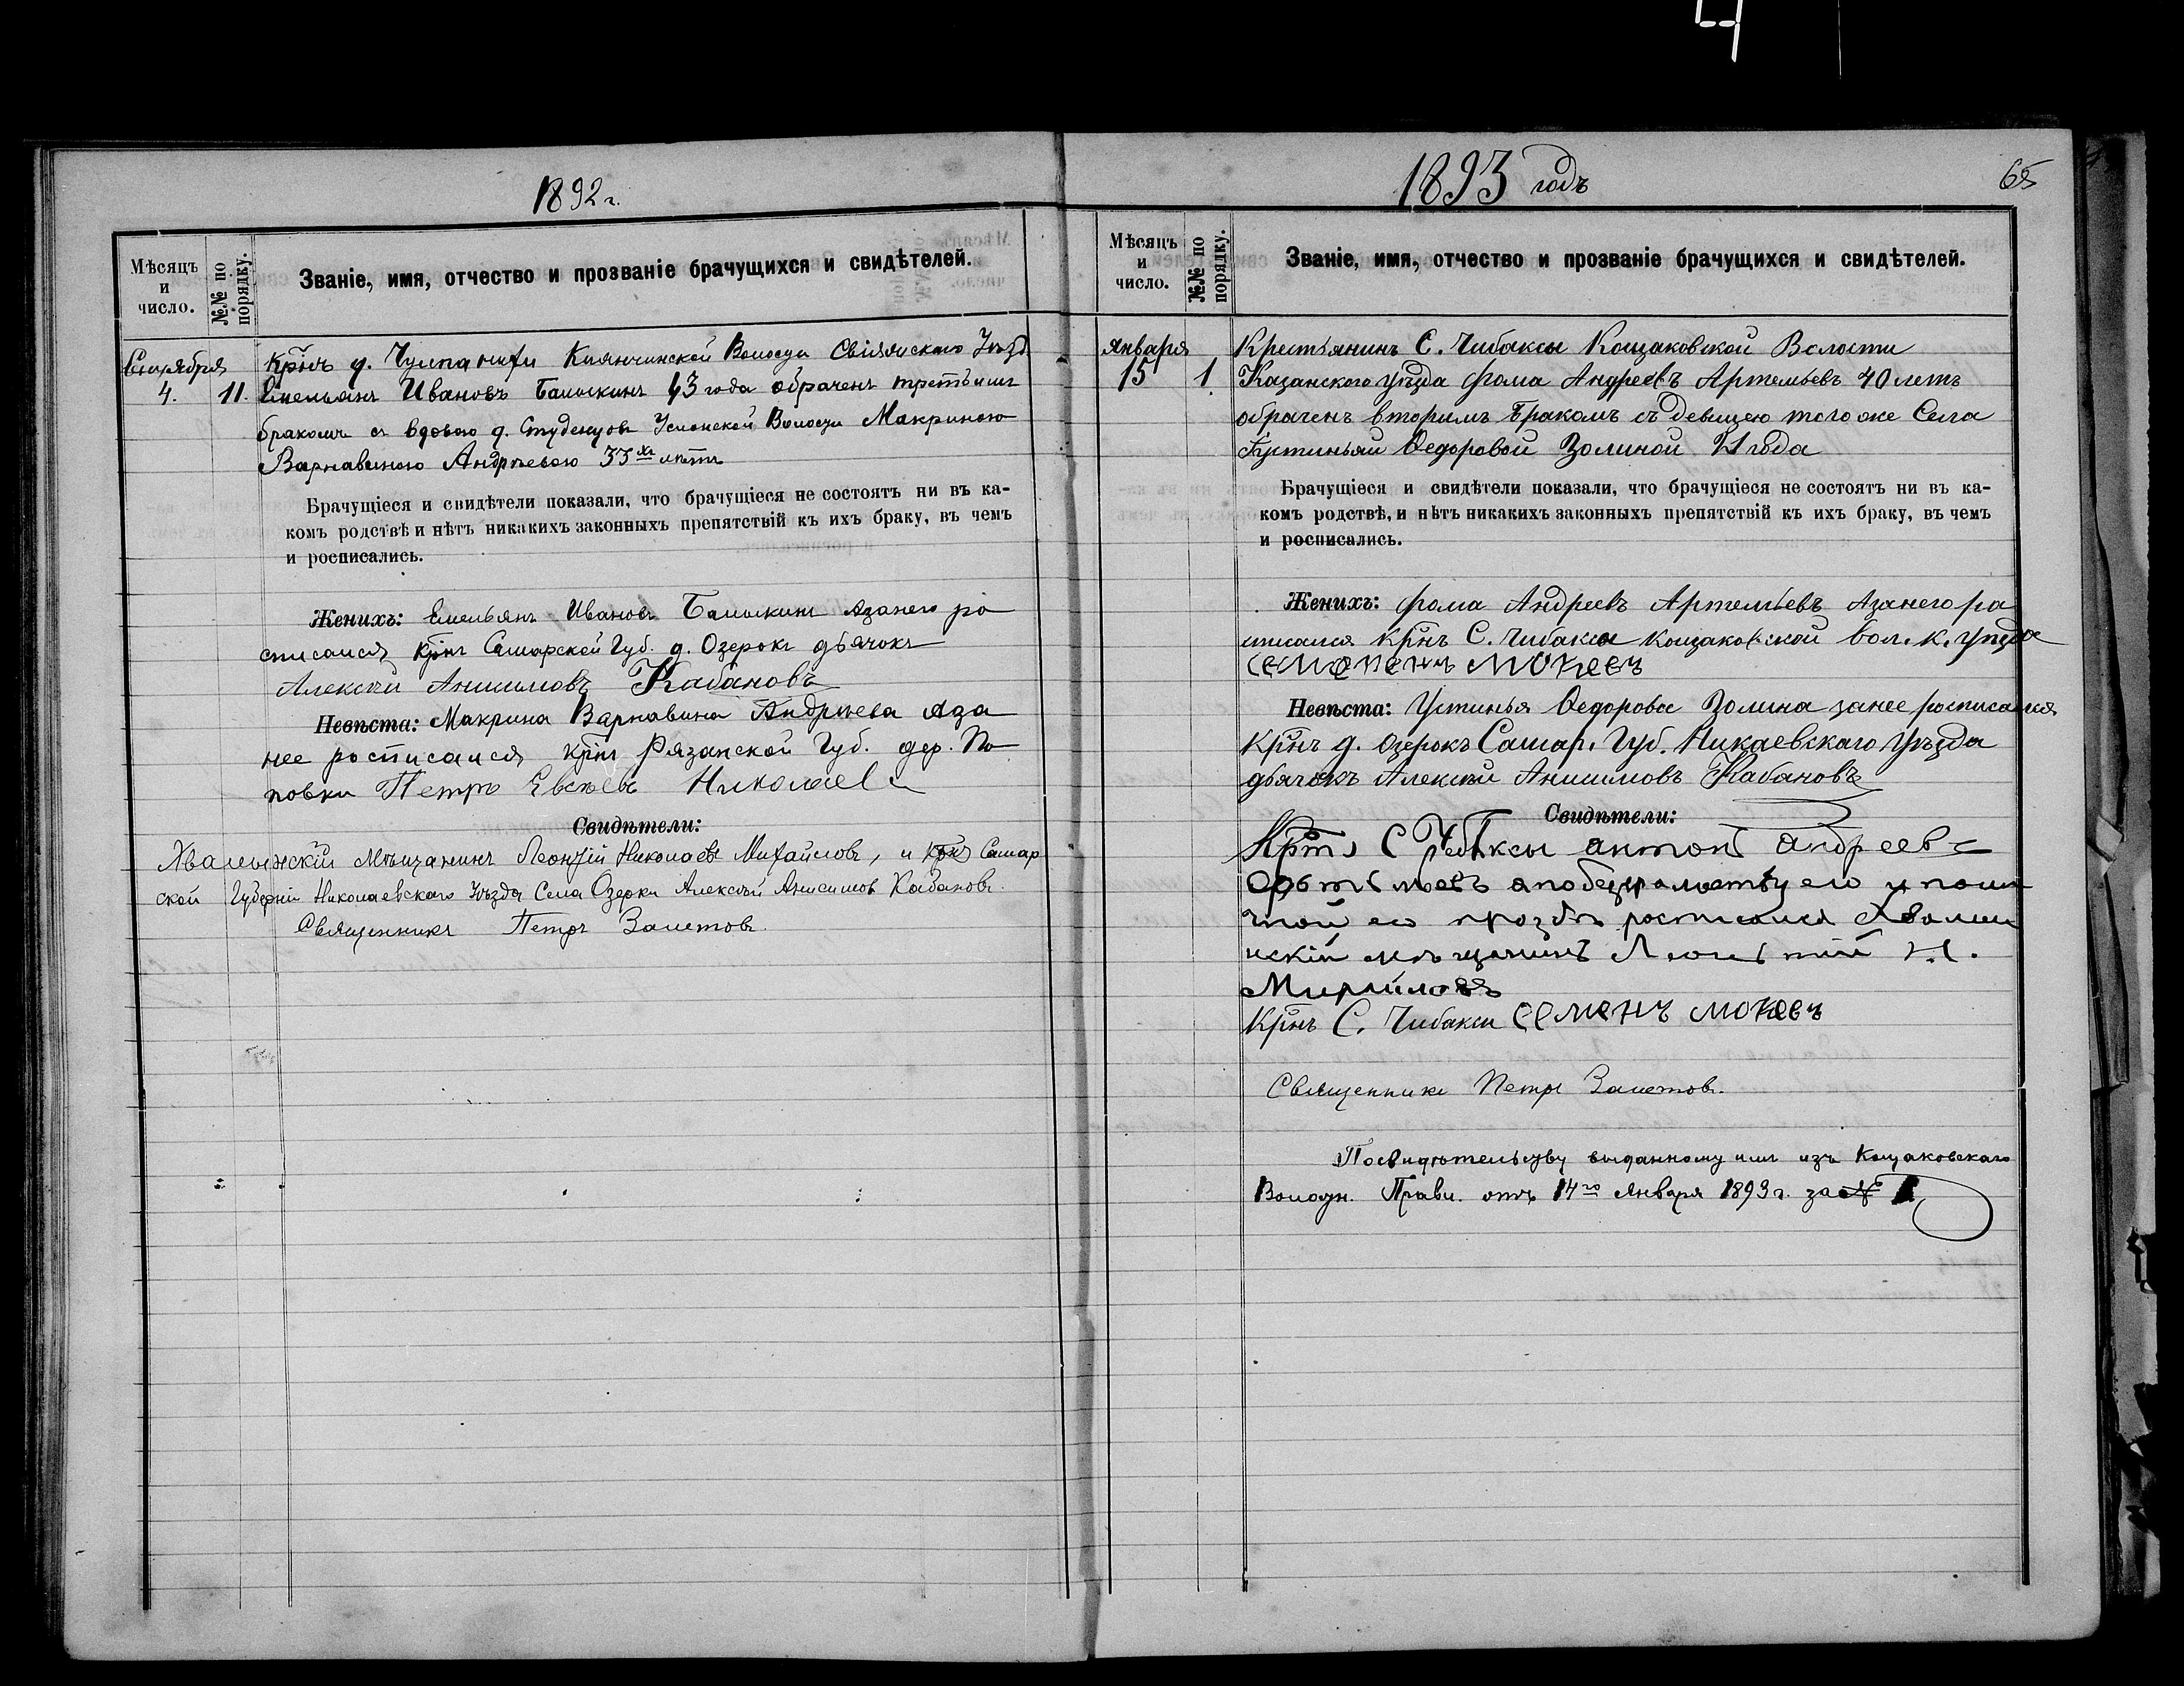 1892 г.
Мѣсяцъ и число.
№№ по порядку.
Званіе, имя, отчество и прозваніе брачущихся и свидѣтелей.
Сентября
4.
11.
Крнъ д. Чулпанихи Клянчинской Волости Свіяжскаго Уѣзд
Емельянъ Ивановъ Балыкинъ 43 года обраченъ третьимъ
бракомъ съ вдовою д. Студенцовъ Услонской Волости Макриною
Варнавиною Андрѣевою 33хъ лѣтъ
Брачущіеся и свидѣтели показали, что брачущіеся не состоятъ ни въ ка-
комъ родствѣ и нѣтъ никакихъ законныхъ препятствій къ ихъ браку, въ чемъ
и росписались.
Женихъ: Емельянъ Ивановъ Балыкинъ азанего ро
списался крнъ Самарской Губ. д. Озерокъ дьячокъ
Алексѣй Анисимовъ Кабановъ
Невѣста: Макрина Варнавина Андрѣева Аза
нее росписался крнъ Рязанской Губ. дер. По
повки Петръ Евсѣевъ Николаевъ
Свидѣтели:
Хвалынскій Мѣщанинъ Леонтій Николаевъ Михайловъ, и крнъ Самар
ской Губерніи Николаевскаго Уѣзда Села Озерки Алексѣй Анисимовъ Кабановъ.
Священникъ Петръ Залетовъ.
1893 годъ
65
Мѣсяцъ и число.
№№ по порядку.
Званіе, имя, отчество и прозваніе брачущихся и свидѣтелей.
Января
15
1
Крестьянинъ С. Чибаксы Кощаковской Волости
Казанского уѣзда Фома Андреевъ Артемьевъ 40 летъ
обраченъ вторимъ бракомъ съ девицею того же Села
Кустиньяй Ѳедоровой Золиной 21 года
Брачущіеся и свидѣтели показали, что брачущіеся не состоятъ ни въ ка-
комъ родствѣ, и нѣтъ никакихъ законныхъ препятствій къ ихъ браку, въ чемъ
и росписались.
Женихъ: Фома Андреевъ Артемьевъ Азанего ра
списался крнъ С. Чибаксы кощаковской вол. к. уѣзда
Семенъ Мокеевъ
Невѣста: Устинья Ѳедорова Золина занее росписался
Крнъ д. Озерокъ Самар. Губ. Никаевскаго Уѣзда
дьячокъ Алексѣй Анисимовъ Кабановъ
Свидѣтели:
С Чебаксы антонъ андреевъ
Артемьевъ апобезграмотству его и поли
чной его прозбѣ росписался Хвалын
нскій мѣщанинъ Леонтий Н.
Михайловъ
Крнъ С. Чибакси Семенъ мокеевъ
Священникъ Петръ Залетовъ.
По свидѣтельству выданному имъ изъ Кощаковскаго
Волостн. Правл. отъ 14го Января 1893 г. за №